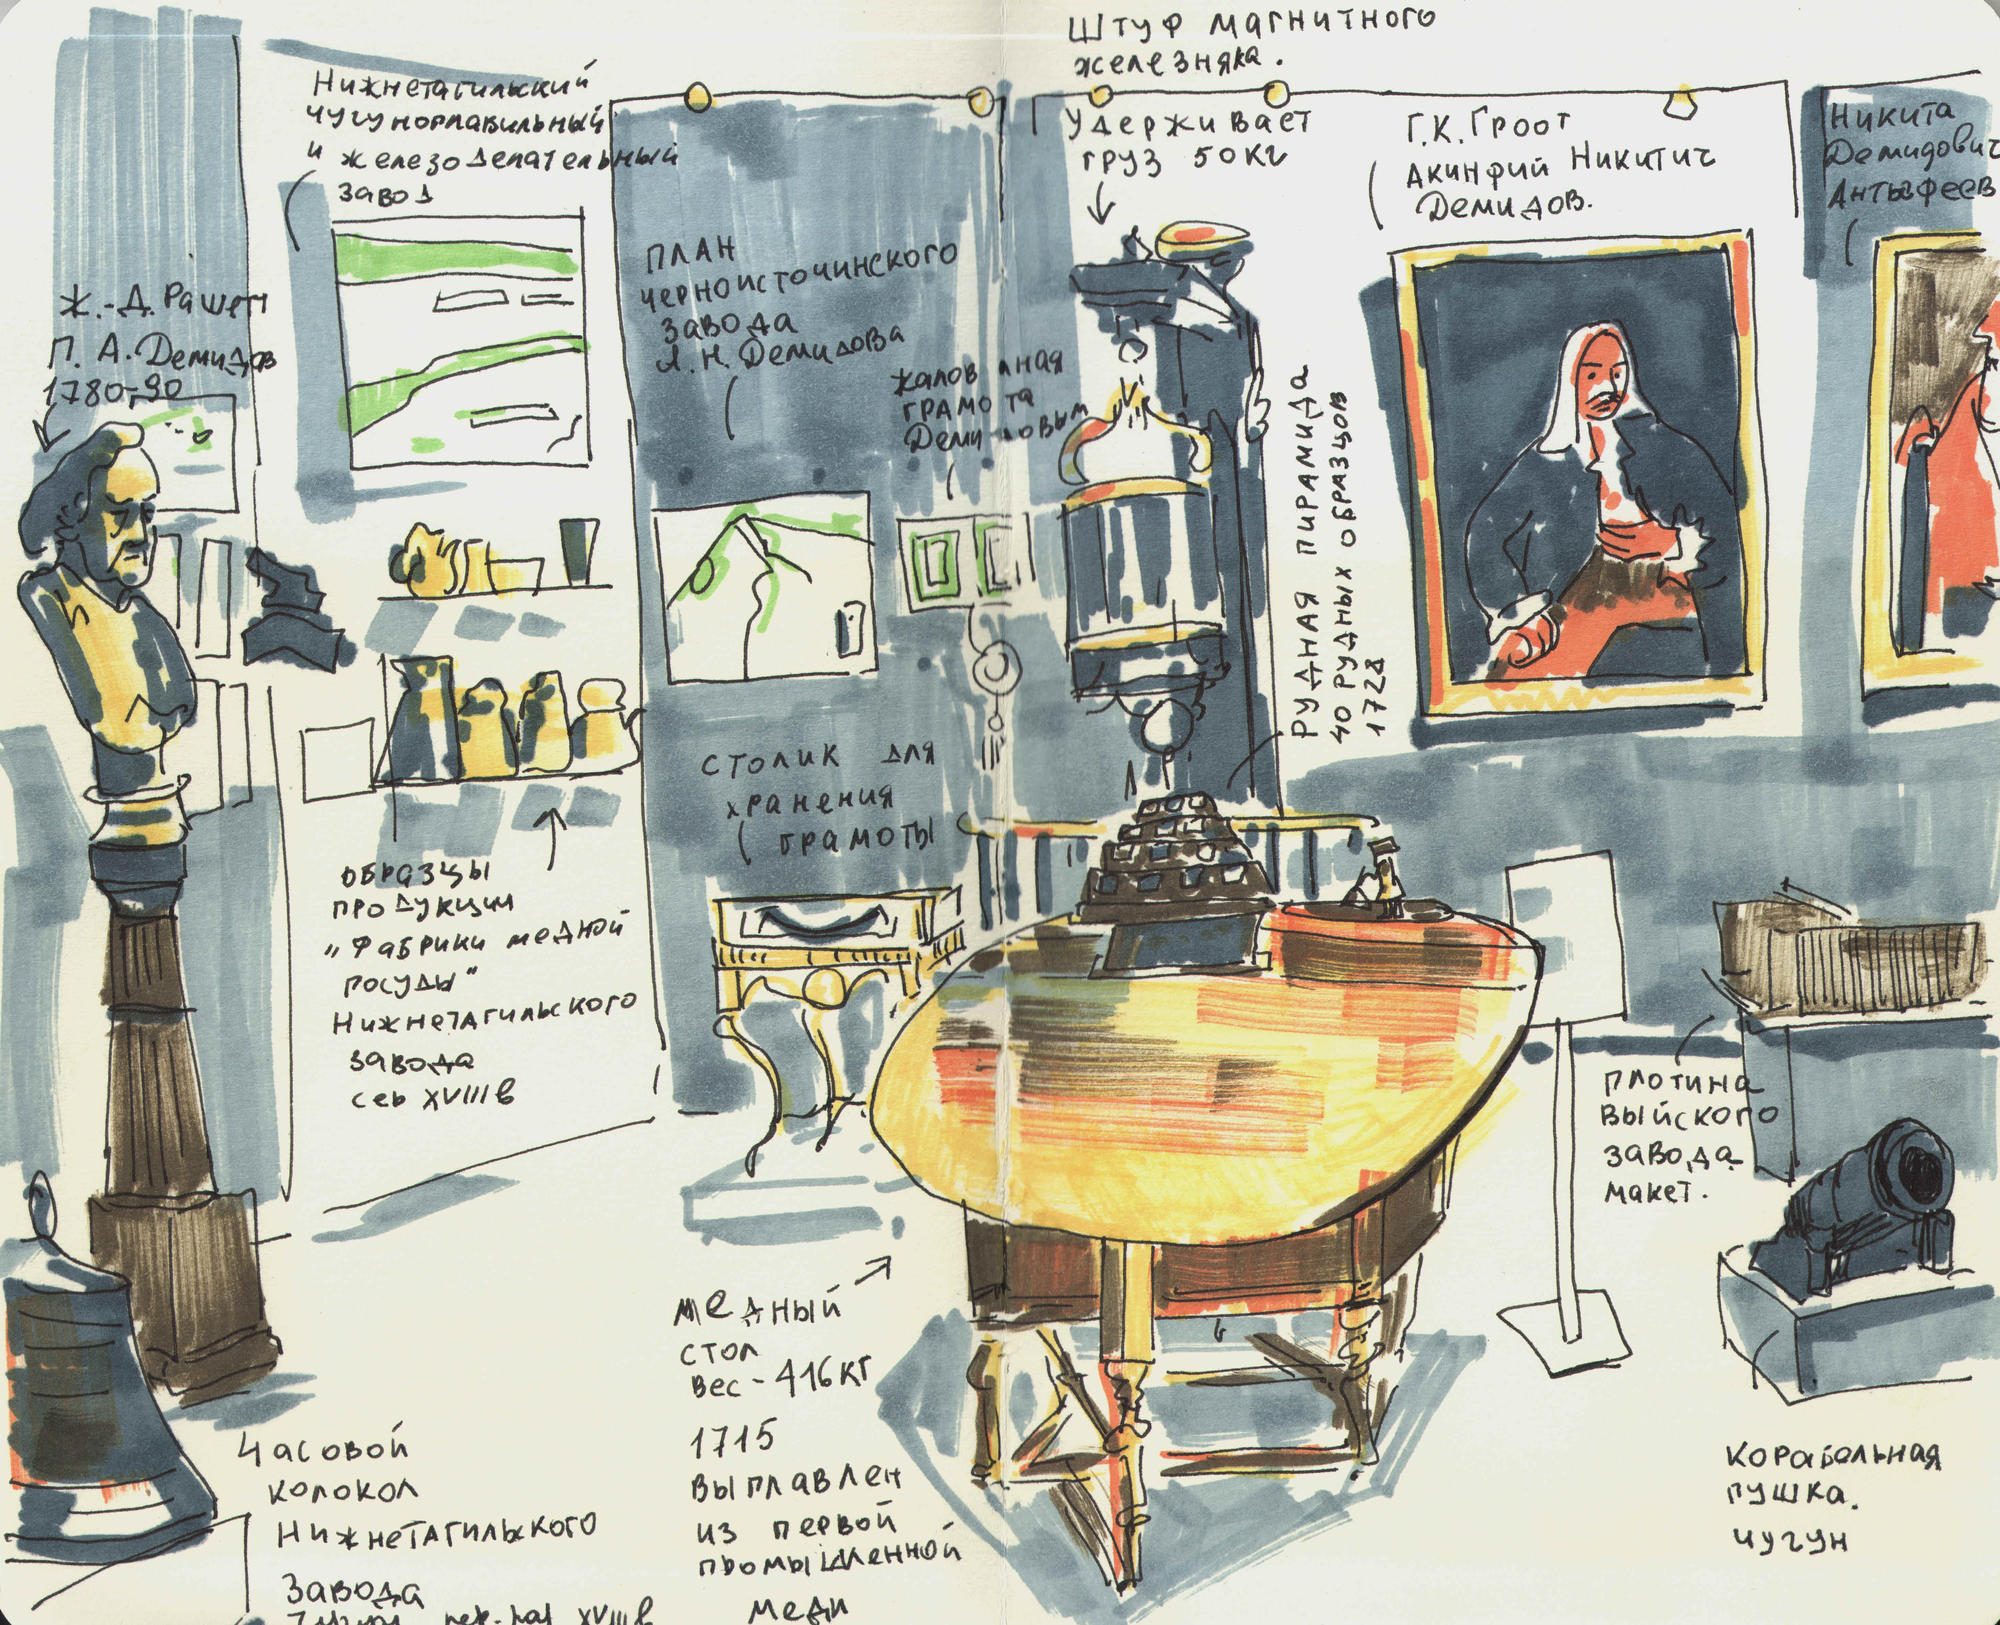 Штуф магнитного
железняка.
Удерживает
груз 50кг
Нижнетагильский
чугуноплавильный
и железоделательный
завод
Г.К. Гроот
Акинфий Никитич
Демидов.
Никита
Демидович
Антуфеев
Ж.-Д. Рашет
П. А. Демидов
1780-90
План
Черноисточинского
завода
А.Н. Демидова
жалованная
грамота
Демидовым
Рудная пирамида
40 рудных образцов
1728
столик для
хранения
грамоты
образцы
продукции
"Фабрики медной
посуды"
Нижнетагильского
завода
сер XVIII в
плотина
Выйского
завода
макет.
медный
стол
вес - 416кг
1715
выплавлен
из первой
промышленной
меди
Часовой
колокол
Нижнетагильского
завода
XVIII в
корабельная
пушка.
чугун